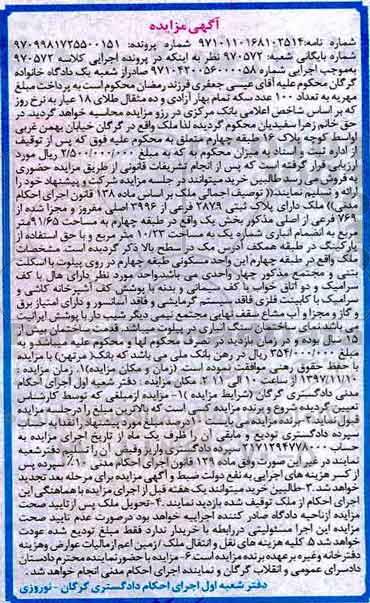 آگهی مزایده
شماره نامه:۹۷۱۰۱۱۰۱۶۸۱۰۲۵۱۴ شماره پرونده: ۹۷۰۹۹۸۱۷۲۵۵۰۰۱۵۱
شماره بایگانی شعبه: ۹۷۰۵۷۲ نظر به اینکه در پرونده اجرایی کلاسه ۹۷۰۵۷۲
به‌موجب اجرایی شماره صادر از شعبه یک دادگاه خانواده
گرگان محکوم علیه آقای عیسی جعفری فرزند رمضان محکوم است به پرداخت مبلغ
مهریه به تعداد ۱۰۰ عدد سکه تمام بهار آزادی و ده مثقال طلای ۱۸ عیار به نرخ روز
که بر اساس شاخص اعلامی بانک مرکزی در رزو مزایده محاسبه خواهد گردید، در
حق خانم زهرا سفیدیان محکوم گردیده لذا ملک واقع در گرگان خیابان بهمن غربی
اواسط کوچه پلاک ۱۶ طبقه چهارم متعلق به محکوم علیه فوق که پس از توقیف
از اداره ثبت اسناد به میزان محکوم به که به مبلغ ۲/۵۰۰/۰۰۰/۰۰۰ ریال مورد
ارزیابی قرار گرفته است که پس از انجام تشریفات قانونی از طریق مزایده حضوری
به فروش می رسد طالبین خرید میتوانند در جلسه مزایده شرکت و پیشنهاد خود را
ارائه و تسلیم نمایند(( توصیف اجمالی ملک بر اساس ماده ۱۳۸ قانون اجرای احکام
مدنی)) ملک دارای پلاک ثبتی ۲۸۷۹ فرعی از ۳۹۹۶ اصلی مفروز و مجزا شده از
۷۶۹ فرعی از اصلی مذکور بخش یک واقع در طبقه چهارم به مساحت ۹۱/۶۵متر
مربع به انضمام انباری شماره یک به مساحت ۱۰/۲۳ متر مربع و با حق استفاده از
پارکینگ در طبقه همکف آدرس مک در سطح بالا ذکر گردیده است مشخصات
ملک واقع در طبقه چهارم این واحد مسکونی طبقه چهارم در روی پیلوت با اسکلت
بتنی و مجتمع مذکور چهار واحدی می باشد.واحد مورد نظر دارای هال با کف
سرامیک و دو اتاق خواب با کف سیمانی و بدنه با پوشش کف آشپزخانه کاشی و
سرامیک با کابینت فلزی فاقد سیستم گرمایشی و فاقد آسانسور و دارای امتیاز برق
و گاز و مجزا و آب مشاع سقف نهایی مجتمع نیمی دیگر شیب دار با پوشش ایرانیت
می باشد نمای ساختمان سنگ انباری در پیلوت میباشد. قدمت ساختمان بیش از
۱۵ سال بوده و در زمان بازدید در تصرف محکوم لها و محکوم علیه میباشد و به
مبلغ ۳۵۴/۰۰۰/۰۰۰ ریال در رهن بانک ملی می باشد که بانک( مرتهن) با مزایده
با حفظ حقوق رهنی موافقت نموده است. (زمان و مکان مزایده) ۱. زمان مزایده :
۱۳۹۷/۱۱/۱۰ از ساعت ۱۰ الی ۱۱ ۲. مکان مزایده : دفتر شعبه اول اجرای احکام
مدنی دادگستری گرگان (شرایط مزایده )۱- مزایده ازمبلغی که توسط کارشناس
تعیین گردیده شروع و برنده مزایده کسی است که بالاترین مبلغ را درجلسه مزایده
قبول نماید.۲-برنده مزایده می بایست ۱۰درصدمبلغ مورد پیشنهاد را نقدا به حساب
سپرده دادگستری تودیع و مابقی آن را ظرف یک ماه از تاریخ اجرای مزایده به
حساب سپرده دادگستری واریز وفیش آن را تسلیم دفترشعبه
نماید در غیر این صورت وفق ماده ۱۲۹ قانون اجرای احکام مدنی ۱۰٪ سپرده پس
از کسر هزینه های اجرایی به نفع دولت ضبط و آگهی مزایده برای مرحله بعد تجدید
خواهد شد.۳-طالبین خرید میتوانند یک هفته قبل از اجرای مزایده با هماهنگی این
اجرای احکام از ملک توقیف شده بازدید نمایند.۴-تحویل ملک پس از تایید صحت
مزایده ازناحیه دادگاه صادر کننده اجراییه خواهد بود.درصورت عدم تایید صحت
مزایده این اجرا مسئولیتی دررابطه با خریدار ندارد فقط مبلغ تودیع شده عودت
خواهد شد ۵. کلیه هزینه های نقل و انتقال ملک / زمین اعم ازمالیات عوارض وهزینه
دفترخانه وغیره برعهده برنده مزایده است۶-مزایده با حضورنماینده محترم دادستان
دادسرای عمومی و انقلاب گرگان و نماینده اجرای احکام مدنی انجام خواهد شد.
دفتر شعبه اول اجرای احکام دادگستری گرگان - نوروزی